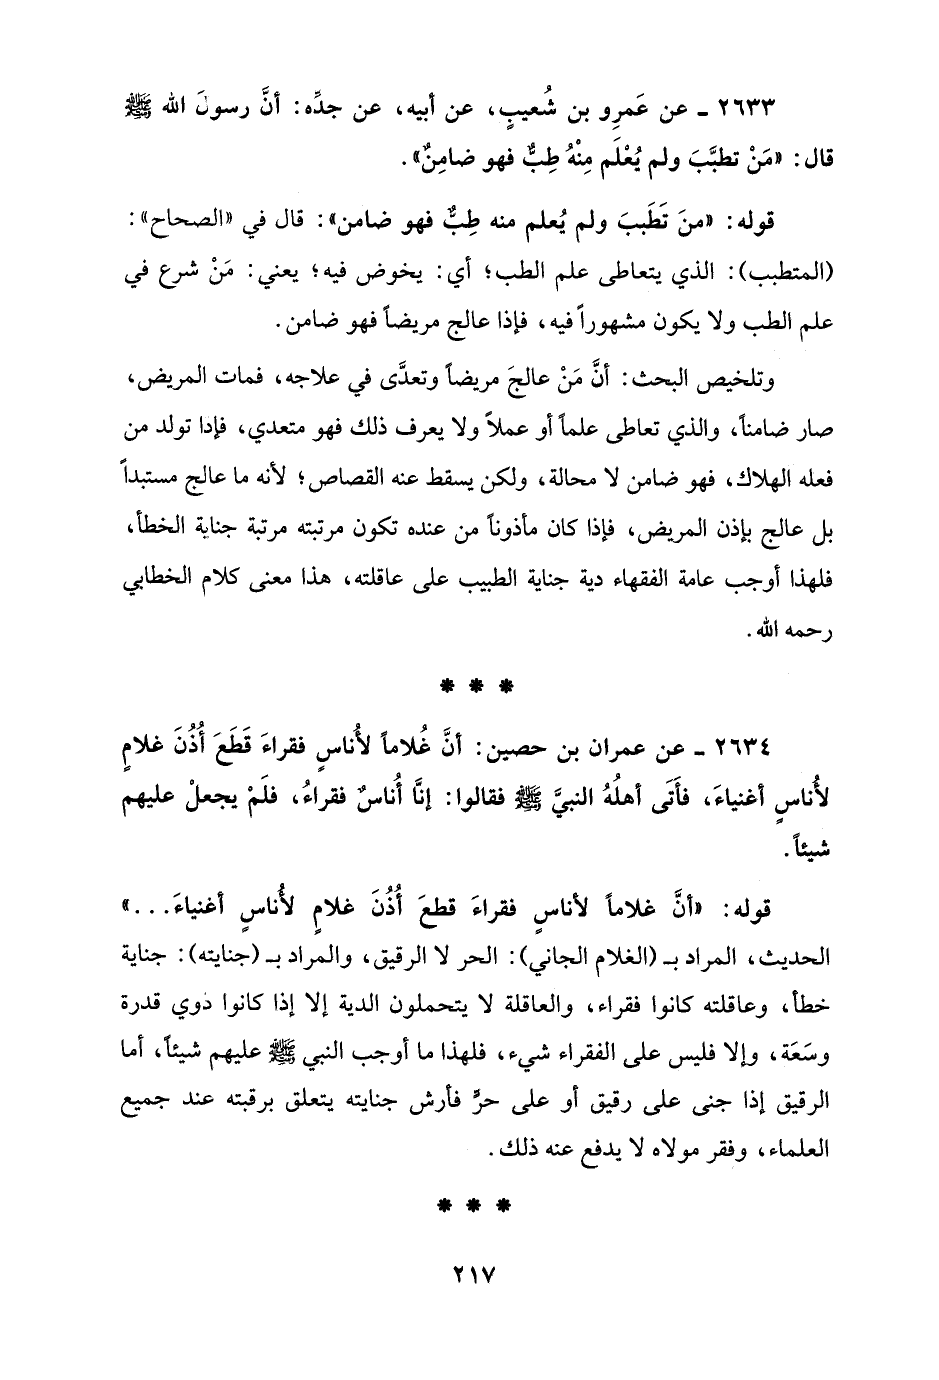 ٢٦٣٣ ـ عن عَمرِو بن شُعيبٍ، عن أبيه، عن جدِّه: أنَّ رسولَ الله ﷺ
قال: «مَنْ تطبَّبَ ولم يُعْلَم مِنْهُ طِبٌّ فهو ضامِنٌ».
قوله: «منَ تَطَببَ ولم يُعلم منه طِبٌّ فهو ضامن»: قال في «الصحاح»:
(المتطبب): الذي يتعاطى علم الطب؛ أي: يخوض فيه؛ يعني: مَنْ شرع في
علم الطب ولا يكون مشهوراً فيه، فإذا عالج مريضاً فهو ضامن.
وتلخيص البحث: أنَّ مَنْ عالجَ مريضاً وتعدَّى في علاجه، فمات المريض،
صار ضامناً، والذي تعاطى علماً أو عملاً ولا يعرف ذلك فهو متعدي، فإذا تولد من
فعله الهلاك، فهو ضامن لا محالة، ولكن يسقط عنه القصاص؛ لأنه ما عالج مستبداً
بل عالج بإذن المريض، فإذا كان مأذوناً من عنده تكون مرتبته مرتبة جناية الخطأ،
فلهذا أوجب عامة الفقهاء دية جناية الطبيب على عاقلته، هذا معنى كلام الخطابي
رحمه الله.
* * *
٢٦٣٤ ـ عن عمران بن حصين: أنَّ غُلاماً لأُناسٍ فقراءَ قَطَعَ أُذُنَ غلامٍ
لأُناسٍ أغنياءَ، فأَتَى أهلُهُ النبيَّ ﷺ فقالوا: إنَّا أُناسٌ فقراءُ، فلَمْ يجعلْ عليهم
شيئاً.
قوله: «أنَّ غلاماً لأناسٍ فقراءَ قطعَ أُذُنَ غلامٍ لأُناسٍ أغنياءَ...»
الحديث، المراد بـ (الغلام الجاني): الحر لا الرقيق، والمراد بـ (جنايته): جناية
خطأ، وعاقلته كانوا فقراء، والعاقلة لا يتحملون الدية إلا إذا كانوا ذوي قدرة
وسَعَة، وإلا فليس على الفقراء شيء، فلهذا ما أوجب النبي ﷺ عليهم شيئاً، أما
الرقيق إذا جنى على رقيق أو على حرٍّ فأرش جنايته يتعلق برقبته عند جميع
العلماء، وفقر مولاه لا يدفع عنه ذلك.
* * *
٢١٧